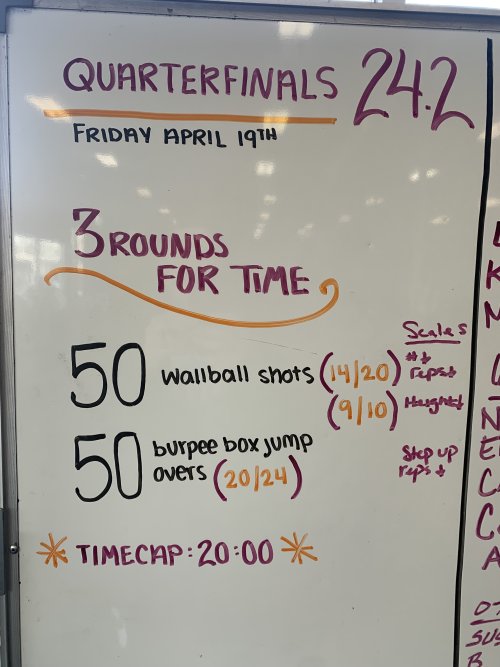 QUARTERFINALS 24.2
FRIDAY APRIL 19TH
3 ROUNDS
FOR TIME
Scales
50 wallball shots (14/20) #↓ reps↓
(9/10) Height↓
50 burpee box jump
overs (20/24) Step up
reps ↓
* TIMECAP: 20:00 *